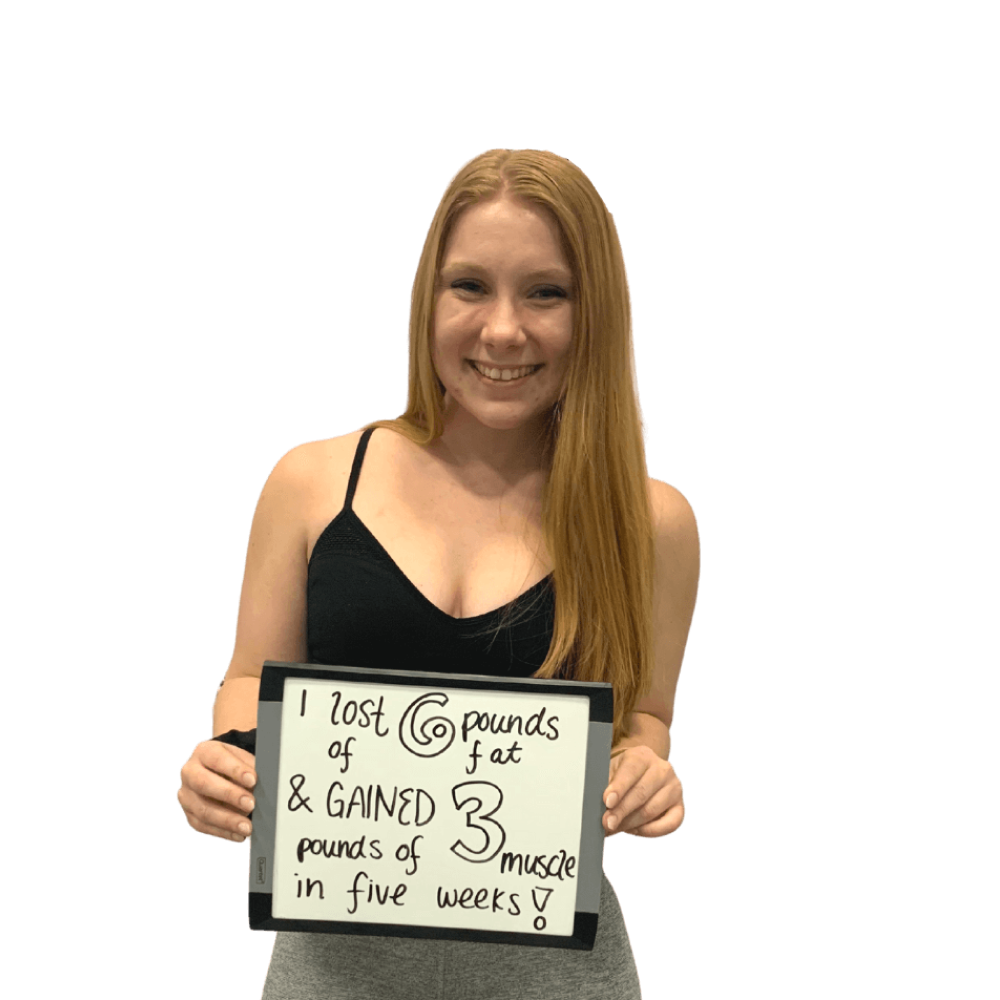 I lost 6 pounds
of fat
& GAINED 3
pounds of muscle
in five weeks!